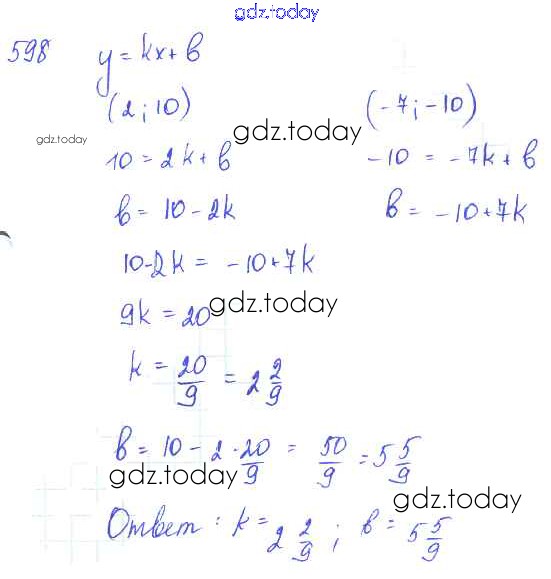 gdz.today
598 y = kx + b
(2; 10) (-7; -10)
gdz.today gdz.today
10 = 2k + b -10 = -7k + b
b = 10 - 2k b = -10 + 7k
10 - 2k = -10 + 7k
9k = 20 gdz.today
k = 20/9 = 2 2/9
b = 10 - 2 · 20/9 = 50/9 = 5 5/9
gdz.today gdz.today
Ответ: k = 2 2/9; b = 5 5/9